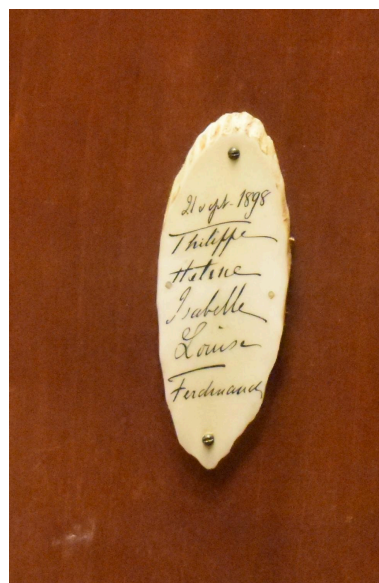 21 sept. 1898
Philippe
Hélène
Isabelle
Louise
Ferdinand